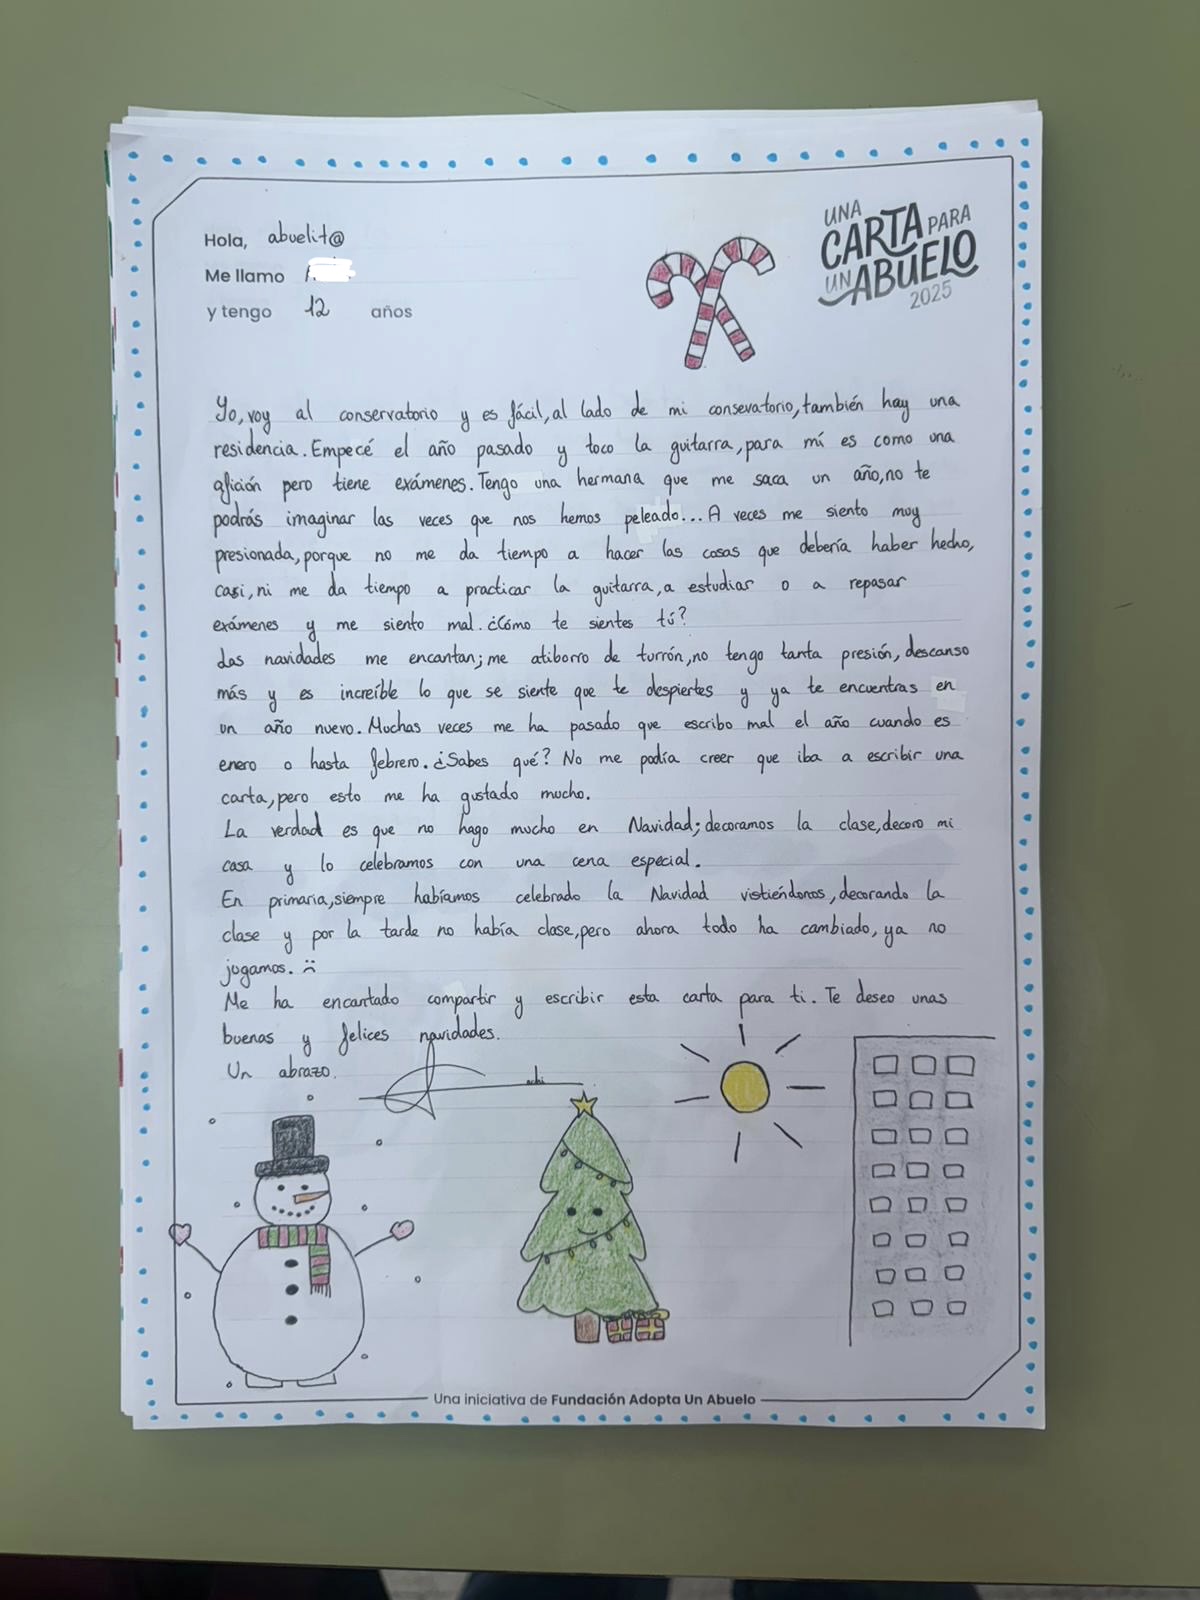 Hola, abuelit@
UNA
CARTA PARA
UN ABUELO
2025
Me llamo
y tengo 12 años
Yo, voy al conservatorio y es fácil, al lado de mi consevatorio, también hay una
residencia. Empecé el año pasado y toco la guitarra, para mí es como una
afición pero tiene exámenes. Tengo una hermana que me saca un año, no te
podrás imaginar las veces que nos hemos peleado... A veces me siento muy
presionada, porque no me da tiempo a hacer las cosas que debería haber hecho,
casi, ni me da tiempo a practicar la guitarra, a estudiar o a repasar
exámenes y me siento mal. ¿Cómo te sientes tú?
Las navidades me encantan; me atiborro de turrón, no tengo tanta presión, descanso
más y es increíble lo que se siente que te despiertes y ya te encuentras en
un año nuevo. Muchas veces me ha pasado que escribo mal el año cuando es
enero o hasta febrero. ¿Sabes qué? No me podía creer que iba a escribir una
carta, pero esto me ha gustado mucho.
La verdad es que no hago mucho en Navidad; decoramos la clase, decoro mi
casa y lo celebramos con una cena especial.
En primaria, siempre habíamos celebrado la Navidad vistiéndonos, decorando la
clase y por la tarde no había clase, pero ahora todo ha cambiado, ya no
jugamos. :(
Me ha encantado compartir y escribir esta carta para ti. Te deseo unas
buenas y felices navidades.
Un abrazo.
Una iniciativa de Fundación Adopta Un Abuelo